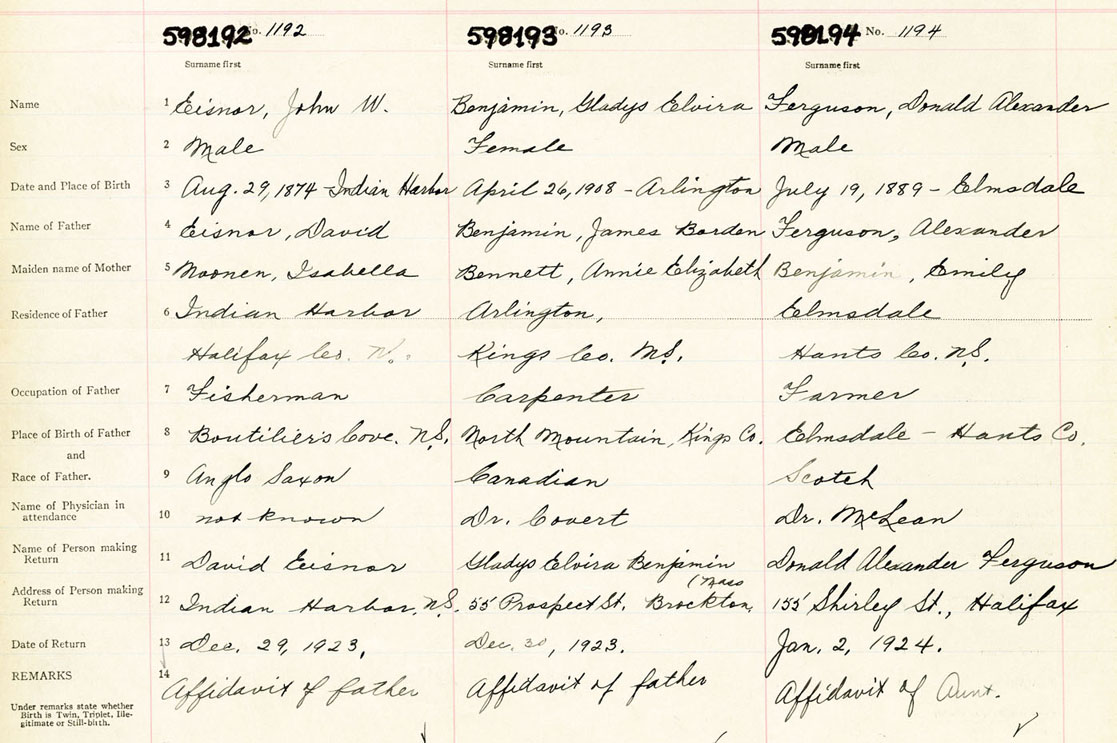 598192 No. 1192 598193 No. 1193 598194 No. 1194
Surname first Surname first Surname first
Name 1 Eisnor, John W. Benjamin, Gladys Elvira Ferguson, Donald Alexander
Sex 2 Male Female Male
Date and Place of Birth 3 Aug. 29, 1874 - Indian Harbor April 26, 1908 - Arlington July 19, 1889 - Elmsdale
Name of Father 4 Eisnor, David Benjamin, James Borden Ferguson, Alexander
Maiden name of Mother 5 Noonen, Isabella Bennett, Annie Elizabeth Benjamin, Emily
Residence of Father 6 Indian Harbor Arlington, Elmsdale
Halifax Co. N. Kings Co. N.S. Hants Co. N.S.
Occupation of Father 7 Fisherman Carpenter Farmer
Place of Birth of Father 8 Boutilier's Cove. N.S. North Mountain, Kings Co. Elmsdale - Hants Co.
and
Race of Father. 9 Anglo Saxon Canadian Scotch
Name of Physician in
attendance 10 not known Dr. Covert Dr. McLean
Name of Person making
Return 11 David Eisnor Gladys Elvira Benjamin Donald Alexander Ferguson
(Mass
Address of Person making
Return 12 Indian Harbor, N.S. 55 Prospect St. Brockton, 155 Shirley St., Halifax
Date of Return 13 Dec. 29, 1923, Dec. 30, 1923. Jan. 2, 1924.
REMARKS 14 Affidavit of father Affidavit of father Affidavit of Aunt.
Under remarks state whether
Birth is Twin, Triplet, Ille-
gitimate or Still-birth.